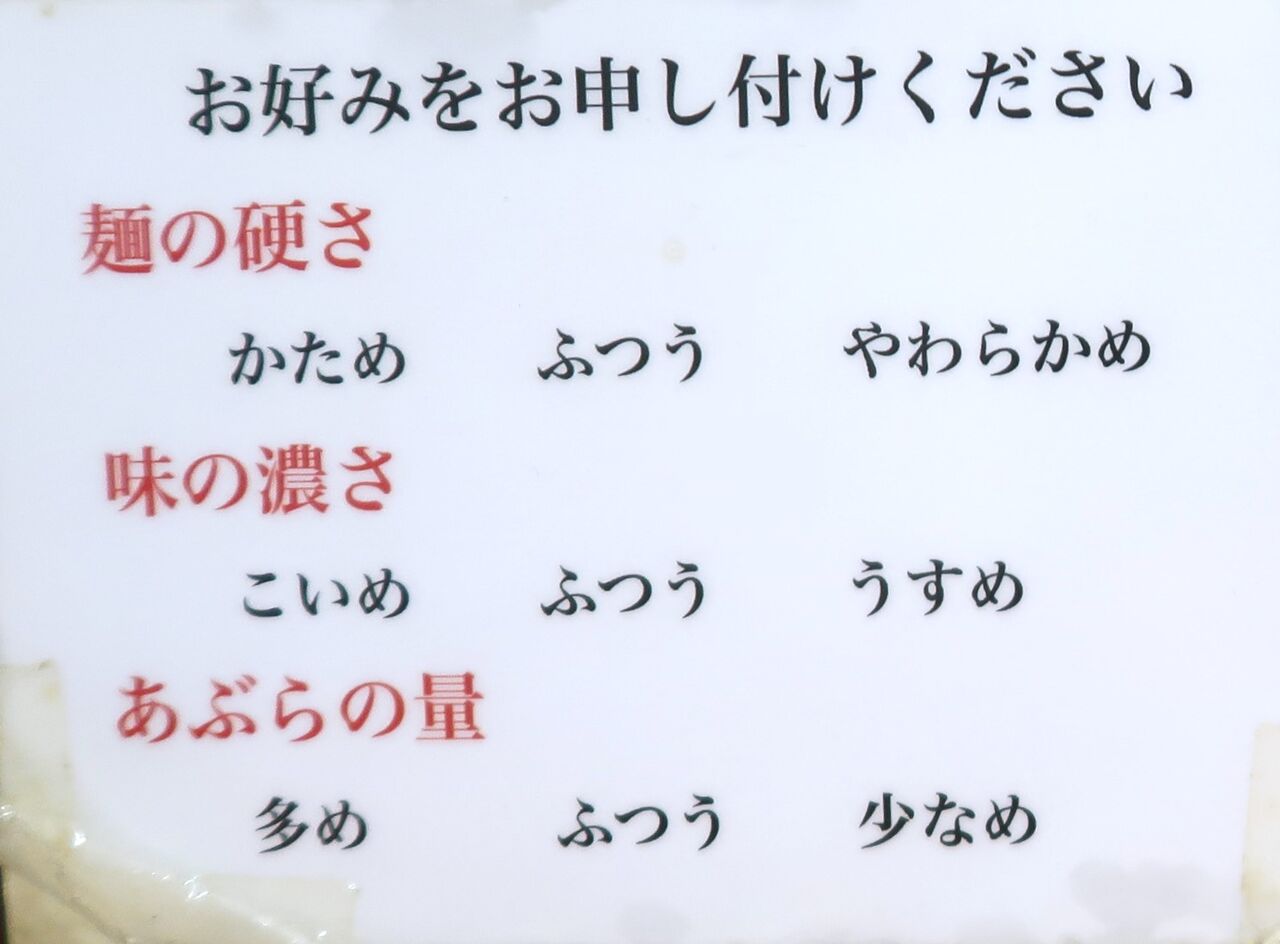 お好みをお申し付けください
麺の硬さ
かため ふつう やわらかめ
味の濃さ
こいめ ふつう うすめ
あぶらの量
多め ふつう 少なめ